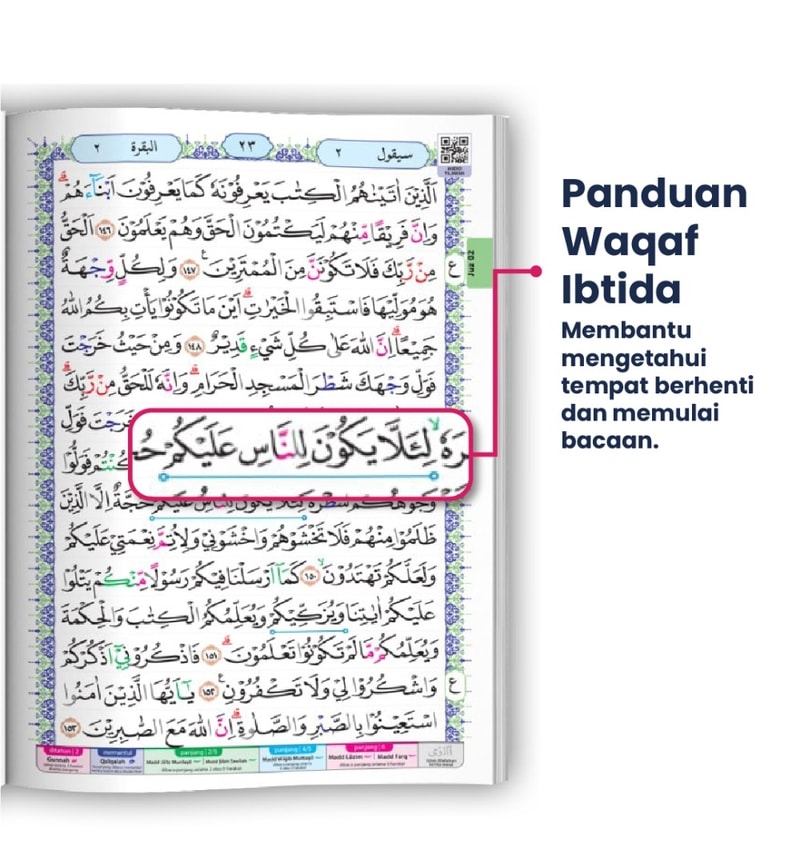 البقرة ٢
٢٣
سيقول ٢
اَلَّذِيْنَ اٰتَيْنٰهُمُ الْكِتٰبَ يَعْرِفُوْنَهٗ كَمَا يَعْرِفُوْنَ اَبْنَاۤءَهُمْۗ
وَاِنَّ فَرِيْقًا مِّنْهُمْ لَيَكْتُمُوْنَ الْحَقَّ وَهُمْ يَعْلَمُوْنَ ١٤٦ اَلْحَقُّ
مِنْ رَّبِّكَ فَلَا تَكُوْنَنَّ مِنَ الْمُمْتَرِيْنَ ࣖ ١٤٧ وَلِكُلٍّ وِّجْهَةٌ
هُوَ مُوَلِّيْهَا فَاسْتَبِقُوا الْخَيْرٰتِۗ اَيْنَ مَا تَكُوْنُوْا يَأْتِ بِكُمُ اللّٰهُ
جَمِيْعًاۗ اِنَّ اللّٰهَ عَلٰى كُلِّ شَيْءٍ قَدِيْرٌ ١٤٨ وَمِنْ حَيْثُ خَرَجْتَ
فَوَلِّ وَجْهَكَ شَطْرَ الْمَسْجِدِ الْحَرَامِۗ وَاِنَّهٗ لَلْحَقُّ مِنْ رَّبِّكَۗ
خَرَجْتَ فَوَلِّ
رَهٗۙ لِئَلَّا يَكُوْنَ لِلنَّاسِ عَلَيْكُمْ حُ
كُنْتُمْ فَوَلُّوْا
وُجُوْهَكُمْ شَطْرَهٗۙ لِئَلَّا يَكُوْنَ لِلنَّاسِ عَلَيْكُمْ حُجَّةٌ اِلَّا الَّذِيْنَ
ظَلَمُوْا مِنْهُمْ فَلَا تَخْشَوْهُمْ وَاخْشَوْنِيْ وَلِاُتِمَّ نِعْمَتِيْ عَلَيْكُمْ
وَلَعَلَّكُمْ تَهْتَدُوْنَۙ ١٥٠ كَمَآ اَرْسَلْنَا فِيْكُمْ رَسُوْلًا مِّنْكُمْ يَتْلُوْا
عَلَيْكُمْ اٰيٰتِنَا وَيُزَكِّيْكُمْ وَيُعَلِّمُكُمُ الْكِتٰبَ وَالْحِكْمَةَ
وَيُعَلِّمُكُمْ مَّا لَمْ تَكُوْنُوْا تَعْلَمُوْنَۗ ١٥١ فَاذْكُرُوْنِيْٓ اَذْكُرْكُمْ
وَاشْكُرُوْا لِيْ وَلَا تَكْفُرُوْنِ ࣖ ١٥٢ يٰٓاَيُّهَا الَّذِيْنَ اٰمَنُوا
اسْتَعِيْنُوْا بِالصَّبْرِ وَالصَّلٰوةِۗ اِنَّ اللّٰهَ مَعَ الصّٰبِرِيْنَ ١٥٣
ع
ع
Juz 02
ditahan | 2
Gunnah
memantul
Qalqalah
panjang | 2/5
Madd Jā'iz Munfaṣil
Madd Ṣilah Ṭawīlah
panjang | 4/5
Madd Wājib Muttaṣil
panjang | 6
Madd Lāzim
Madd Farq
Panduan
Waqaf
Ibtida
Membantu
mengetahui
tempat berhenti
dan memulai
bacaan.